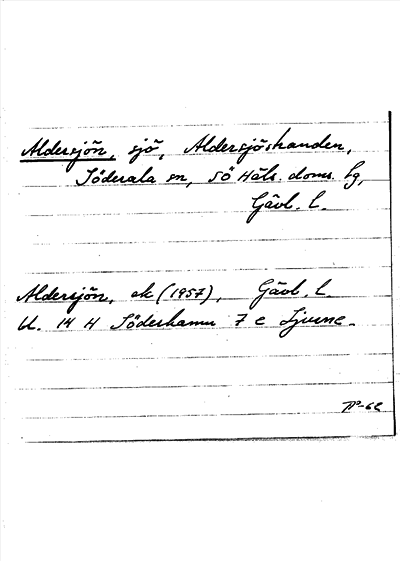 Aldersjön, sjö, Aldersjöstranden,
Söderala sn, SÖ Häls. doms. hg,
Gävl. l.
Aldersjön, ek (1957), Gävl. l.
Bl. 14 H Söderhamn 7 e Ljusne.
-62